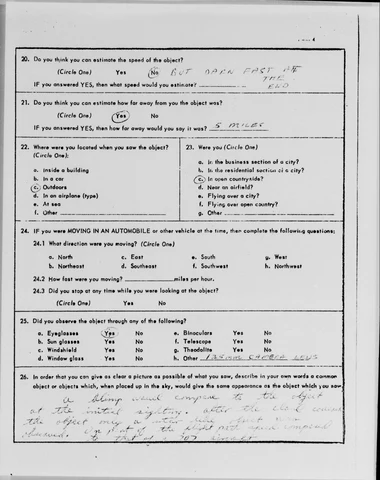 20. Do you think you can estimate the speed of the object?
(Circle One) Yes No BUT DARN FAST AT
THE
IF you answered YES, then what speed would you estimate? END
21. Do you think you can estimate how far away from you the object was?
(Circle One) Yes No
IF you answered YES, then how far away would you say it was? 5 MILES
22. Where were you located when you saw the object?
(Circle One):
a. Inside a building
b. In a car
c. Outdoors
d. In an airplane (type)
e. At sea
f. Other
23. Were you (Circle One)
a. In the business section of a city?
b. In the residential section of a city?
c. In open countryside?
d. Near an airfield?
e. Flying over a city?
f. Flying over open country?
g. Other
24. IF you were MOVING IN AN AUTOMOBILE or other vehicle at the time, then complete the following questions:
24.1 What direction were you moving? (Circle One)
a. North c. East e. South g. West
b. Northeast d. Southeast f. Southwest h. Northwest
24.2 How fast were you moving? miles per hour.
24.3 Did you stop at any time while you were looking at the object?
(Circle One) Yes No
25. Did you observe the object through any of the following?
a. Eyeglasses Yes No e. Binoculars Yes No
b. Sun glasses Yes No f. Telescope Yes No
c. Windshield Yes No g. Theodolite Yes No
d. Window glass Yes No h. Other 135MM CAMERA LENS
26. In order that you can give as clear a picture as possible of what you saw, describe in your own words a common
object or objects which, when placed up in the sky, would give the same appearance as the object which you saw.
a blimp would compare to the object
at the initial sighting. after the cloud
the object only a
observed. of the flight path speed compared
to that of a